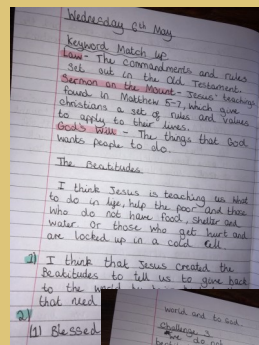 Wednesday 6th May
Keyword Match up
Law - The commandments and rules
set out in the Old Testament.
Sermon on the Mount - Jesus' teachings
found in Matthew 5-7, which give
christians a set of rules and values
to apply to their lives.
God's Will - The things that God
wants people to do.
The Beatitudes
I think Jesus is teaching us what
to do in life, help the poor and those
who do not have food, shelter and
water. Or those who get hurt and
are locked up in a cold cell
1) I think that Jesus created the
Beatitudes to tell us to gave back
to the world
that need
2)
(1) Blessed
world and to God.
Challenge 3
we do not